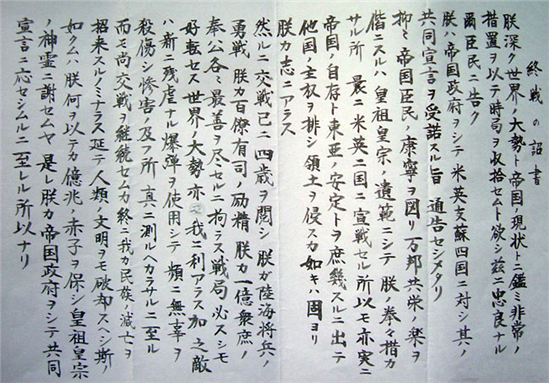 終戦の詔書
朕深ク世界ノ大勢ト帝国ノ現状トニ鑑ミ非常ノ
措置ヲ以テ時局ヲ収拾セムト欲シ茲ニ忠良ナル
爾臣民ニ告ク
朕ハ帝国政府ヲシテ米英支蘇四国ニ対シ其ノ
共同宣言ヲ受諾スル旨通告セシメタリ
抑〻帝国臣民ノ康寧ヲ図リ万邦共栄ノ楽ヲ
偕ニスルハ皇祖皇宗ノ遺範ニシテ朕ノ拳々措カ
サル所曩ニ米英二国ニ宣戦セル所以モ亦実ニ
帝国ノ自存ト東亜ノ安定トヲ庶幾スルニ出テ
他国ノ主权ヲ排シ領土ヲ侵スカ如キハ固ヨリ
朕カ志ニアラス
然ルニ交戦已ニ四歳ヲ閲シ朕ガ陸海将兵ノ
勇戦朕カ百僚有司ノ励精朕カ一億衆庶ノ
奉公各〻最善ヲ尽セルニ拘ラス戦局必スシモ
好転セス世界ノ大勢亦我ニ利アラス加之敵
ハ新ニ残虐ナル爆弾ヲ使用シテ頻ニ無辜ヲ
殺傷シ惨害ノ及フ所真ニ測ルヘカラサルニ至ル
而モ尚交戦ヲ継続セムカ終ニ我カ民族ノ滅亡ヲ
招来スルノミナラス延テ人類ノ文明ヲモ破却スヘシ斯ノ
如クムハ朕何ヲ以テカ億兆ノ赤子ヲ保シ皇祖皇宗
ノ神霊ニ謝セムヤ是レ朕カ帝国政府ヲシテ共同
宣言ニ応セシムルニ至レル所以ナリ